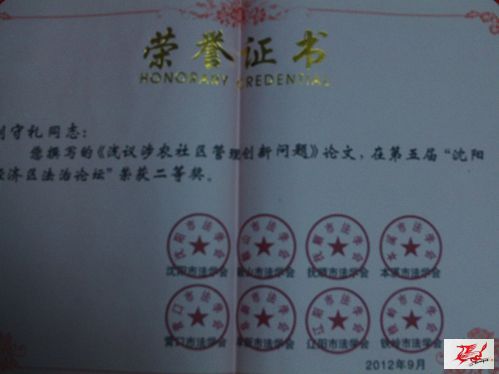 荣誉证书
HONORARY CREDENTIAL
守礼同志:
您撰写的《浅议涉农社区管理创新问题》论文,在第五届“沈阳
经济区法治论坛”荣获二等奖。
沈阳市法学会 鞍山市法学会 抚顺市法学会 本溪市法学会
营口市法学会 阜新市法学会 辽阳市法学会 铁岭市法学会
2012年9月